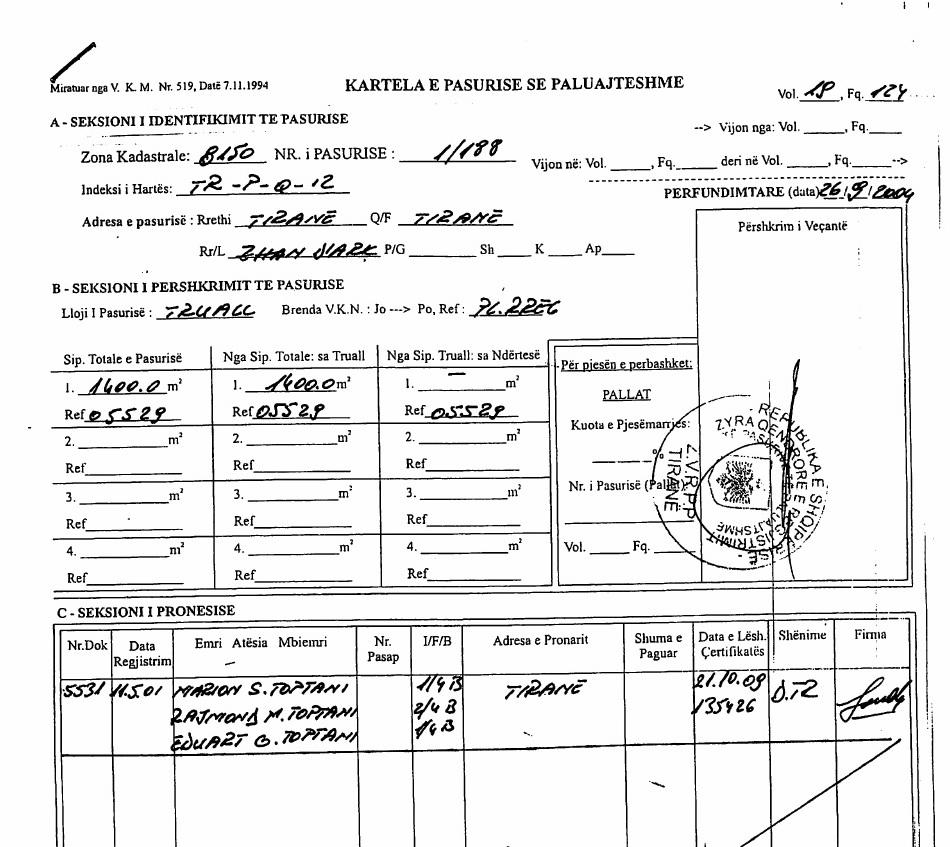 Miratuar nga V. K. M. Nr. 519, Datë 7.11.1994
KARTELA E PASURISE SE PALUAJTESHME
Vol. 18, Fq. 124
A - SEKSIONI I IDENTIFIKIMIT TE PASURISE
--> Vijon nga: Vol. ______, Fq.____
Zona Kadastrale: 8150 NR. i PASURISE : 1/188
Vijon në: Vol. _____, Fq._____ deri në Vol. _____, Fq.____-->
Indeksi i Hartës: TR-P-Q-12
PERFUNDIMTARE (data) 26/9/2004
Adresa e pasurisë : Rrethi TIRANË Q/F TIRANË
Përshkrim i Veçantë
Rr/L ZHAN D'ARK P/G ______ Sh ____ K ____ Ap____
B - SEKSIONI I PERSHKRIMIT TE PASURISE
Lloji I Pasurisë : TRUALL Brenda V.K.N. : Jo ---> Po, Ref :
Sip. Totale e Pasurisë Nga Sip. Totale: sa Truall Nga Sip. Truall: sa Ndërtesë
Për pjesën e perbashket:
1. 1400.0 m² 1. 1400.0 m² 1. — m²
PALLAT
Ref 05529 Ref 05529 Ref 05529
Kuota e Pjesëmarrjes:
2. ______ m² 2. ______ m² 2. ______ m²
Ref______ Ref______ Ref______
Nr. i Pasurisë (Pallat)
3. ______ m² 3. ______ m² 3. ______ m²
Ref______ Ref______ Ref______
4. ______ m² 4. ______ m² 4. ______ m²
Vol. _____ Fq. _____
Ref______ Ref______ Ref______
REPUBLIKA E SHQIPERISE
ZYRA QENDRORE E REGJISTRIMIT
TE PASURIVE TE PALUAJTSHME
Z.V.R.P.P
TIRANË
C - SEKSIONI I PRONESISE
Nr.Dok Data Regjistrim Emri Atësia Mbiemri Nr. Pasap I/F/B Adresa e Pronarit Shuma e Paguar Data e Lësh. Çertifikatës Shënime Firma
5531 11.5.01 MARION S. TOPTANI 1/4 B TIRANË 21.10.09 D.TR
RAJMOND M. TOPTANI 2/4 B 135426
EDUART G. TOPTANI 1/4 B